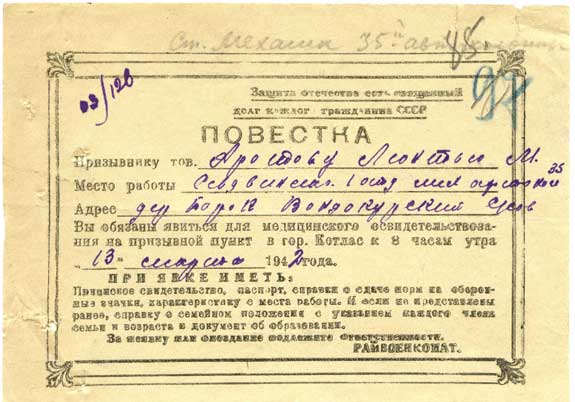 Ст. Механик 35й
88
03/126
97
Защита отечества есть священный
долг каждог гражданина СССР
ПОВЕСТКА
Призывнику тов. М.
Место работы 35
Адрес дер Борок Вондокурский
Вы обязаны явиться для медицинского освидетельствова
ния на призывной пункт в гор. Котлас к 8 часам утра
"13" марта 1942года.
ПРИ ЯВКЕ ИМЕТЬ:
Приписное свидетельство, паспорт, справки о сдаче норм на оборон
ные значки, характеристику с места работы. И если не представлены
ранее, справку о семейном положения с указанием каждого члена
семьи и возраста и документ об образовании.
За неявку или опоздание подлежите ответственности.
РАЙВОЕНКОМАТ.